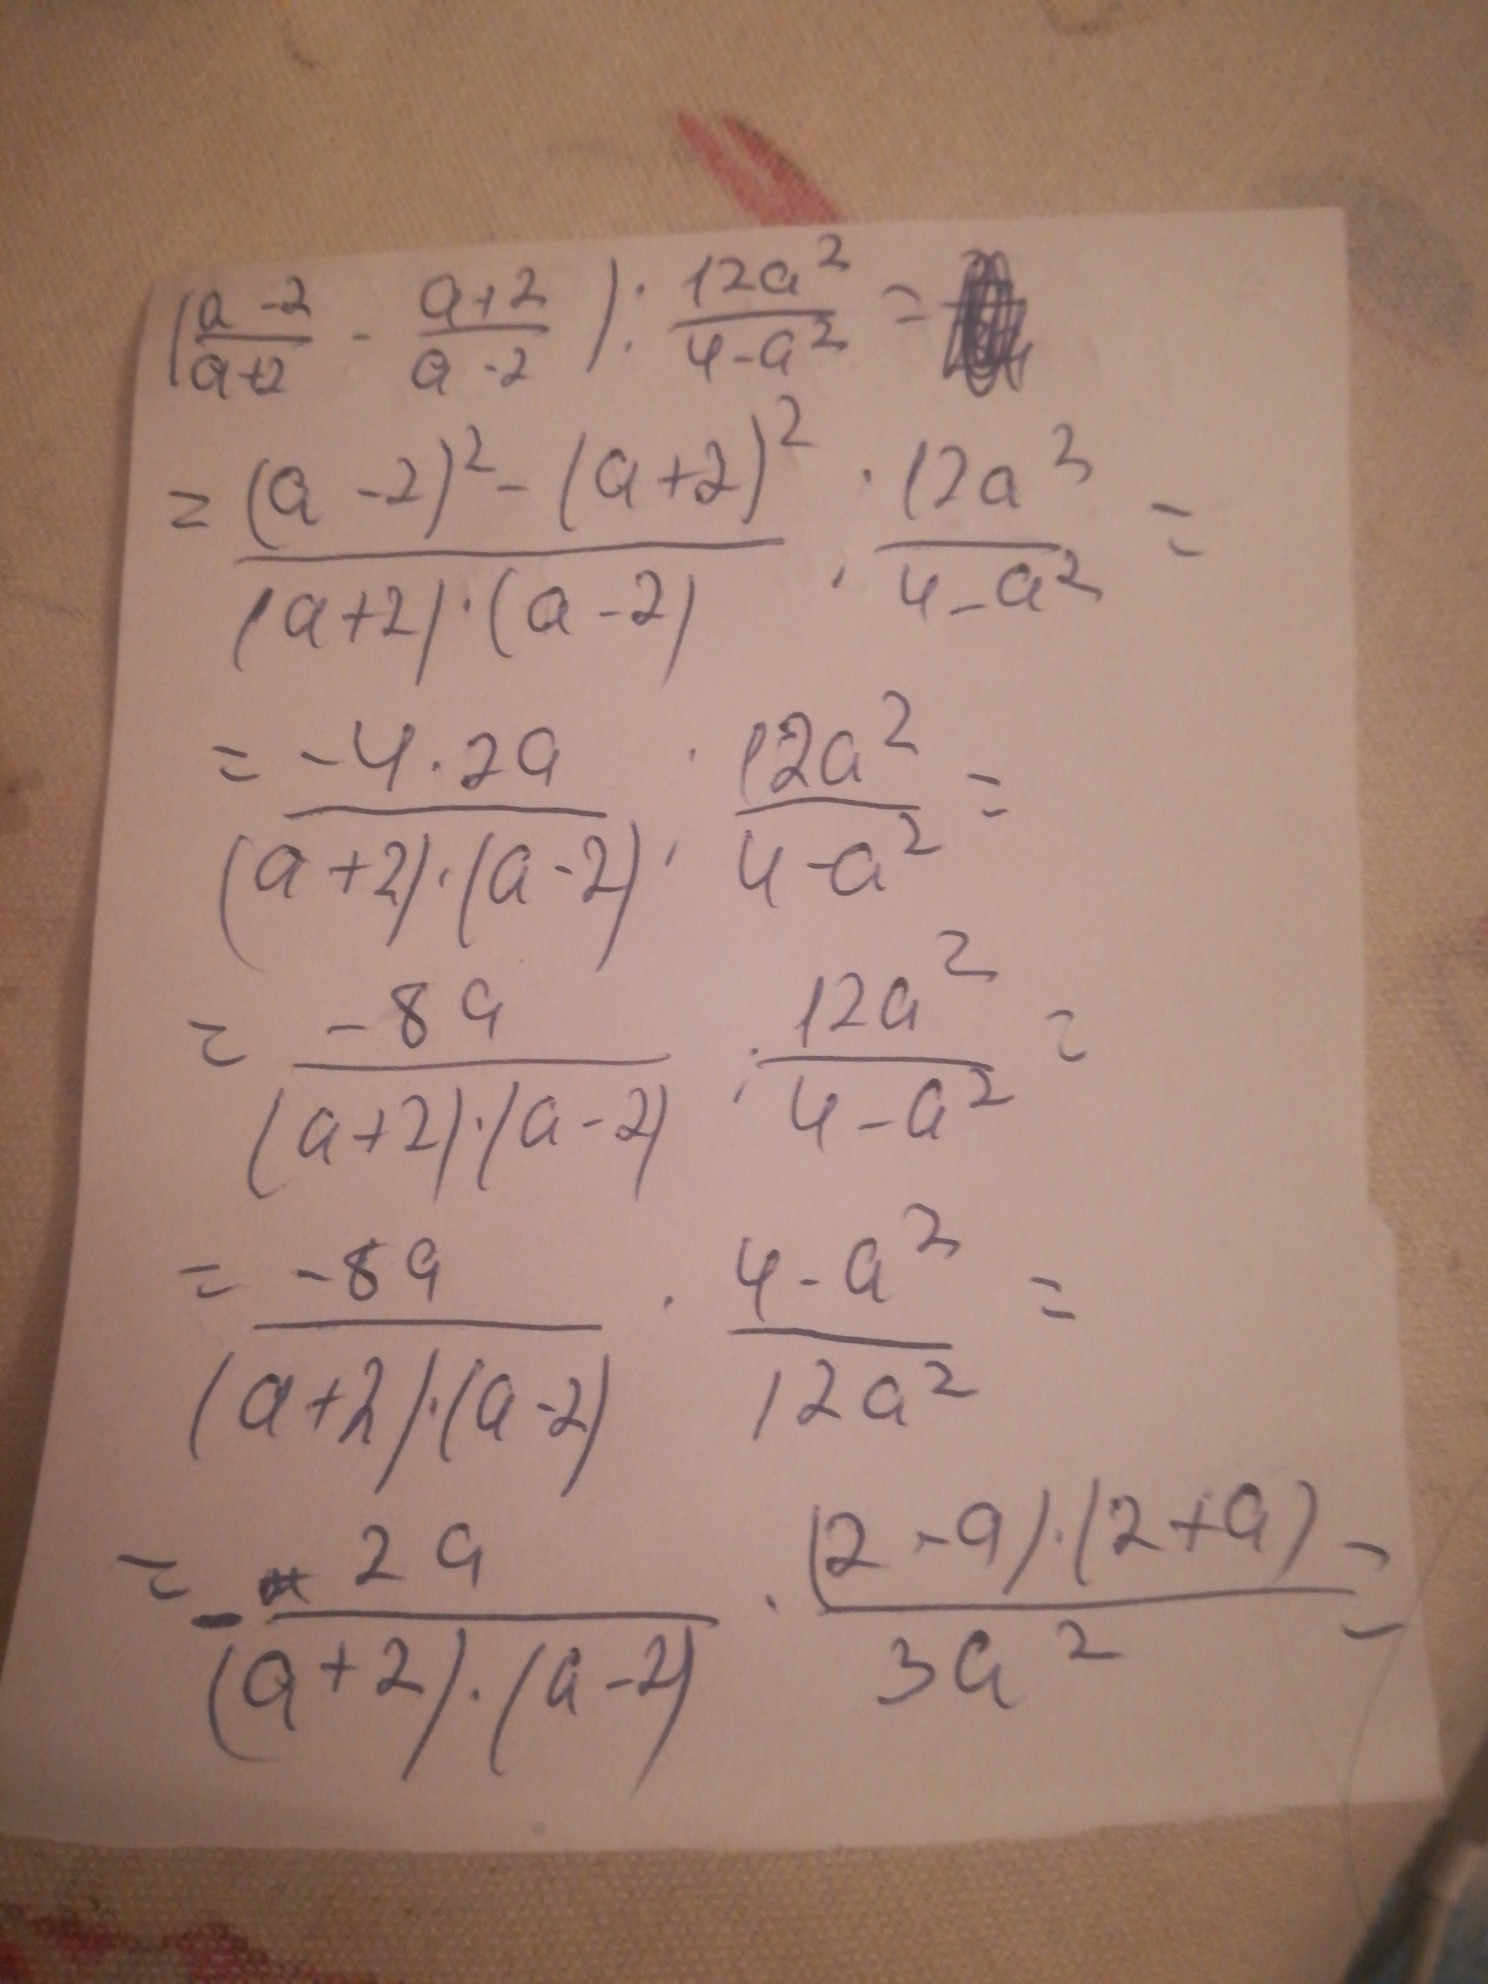 (a-2/a+2 - a+2/a-2) : 12a²/4-a² =
= (a-2)² - (a+2)²/(a+2)·(a-2) : 12a²/4-a² =
= -4·2a/(a+2)·(a-2) : 12a²/4-a² =
= -8a/(a+2)·(a-2) : 12a²/4-a² =
= -8a/(a+2)·(a-2) · 4-a²/12a² =
= - 2a/(a+2)·(a-2) · (2-a)·(2+a)/3a² =